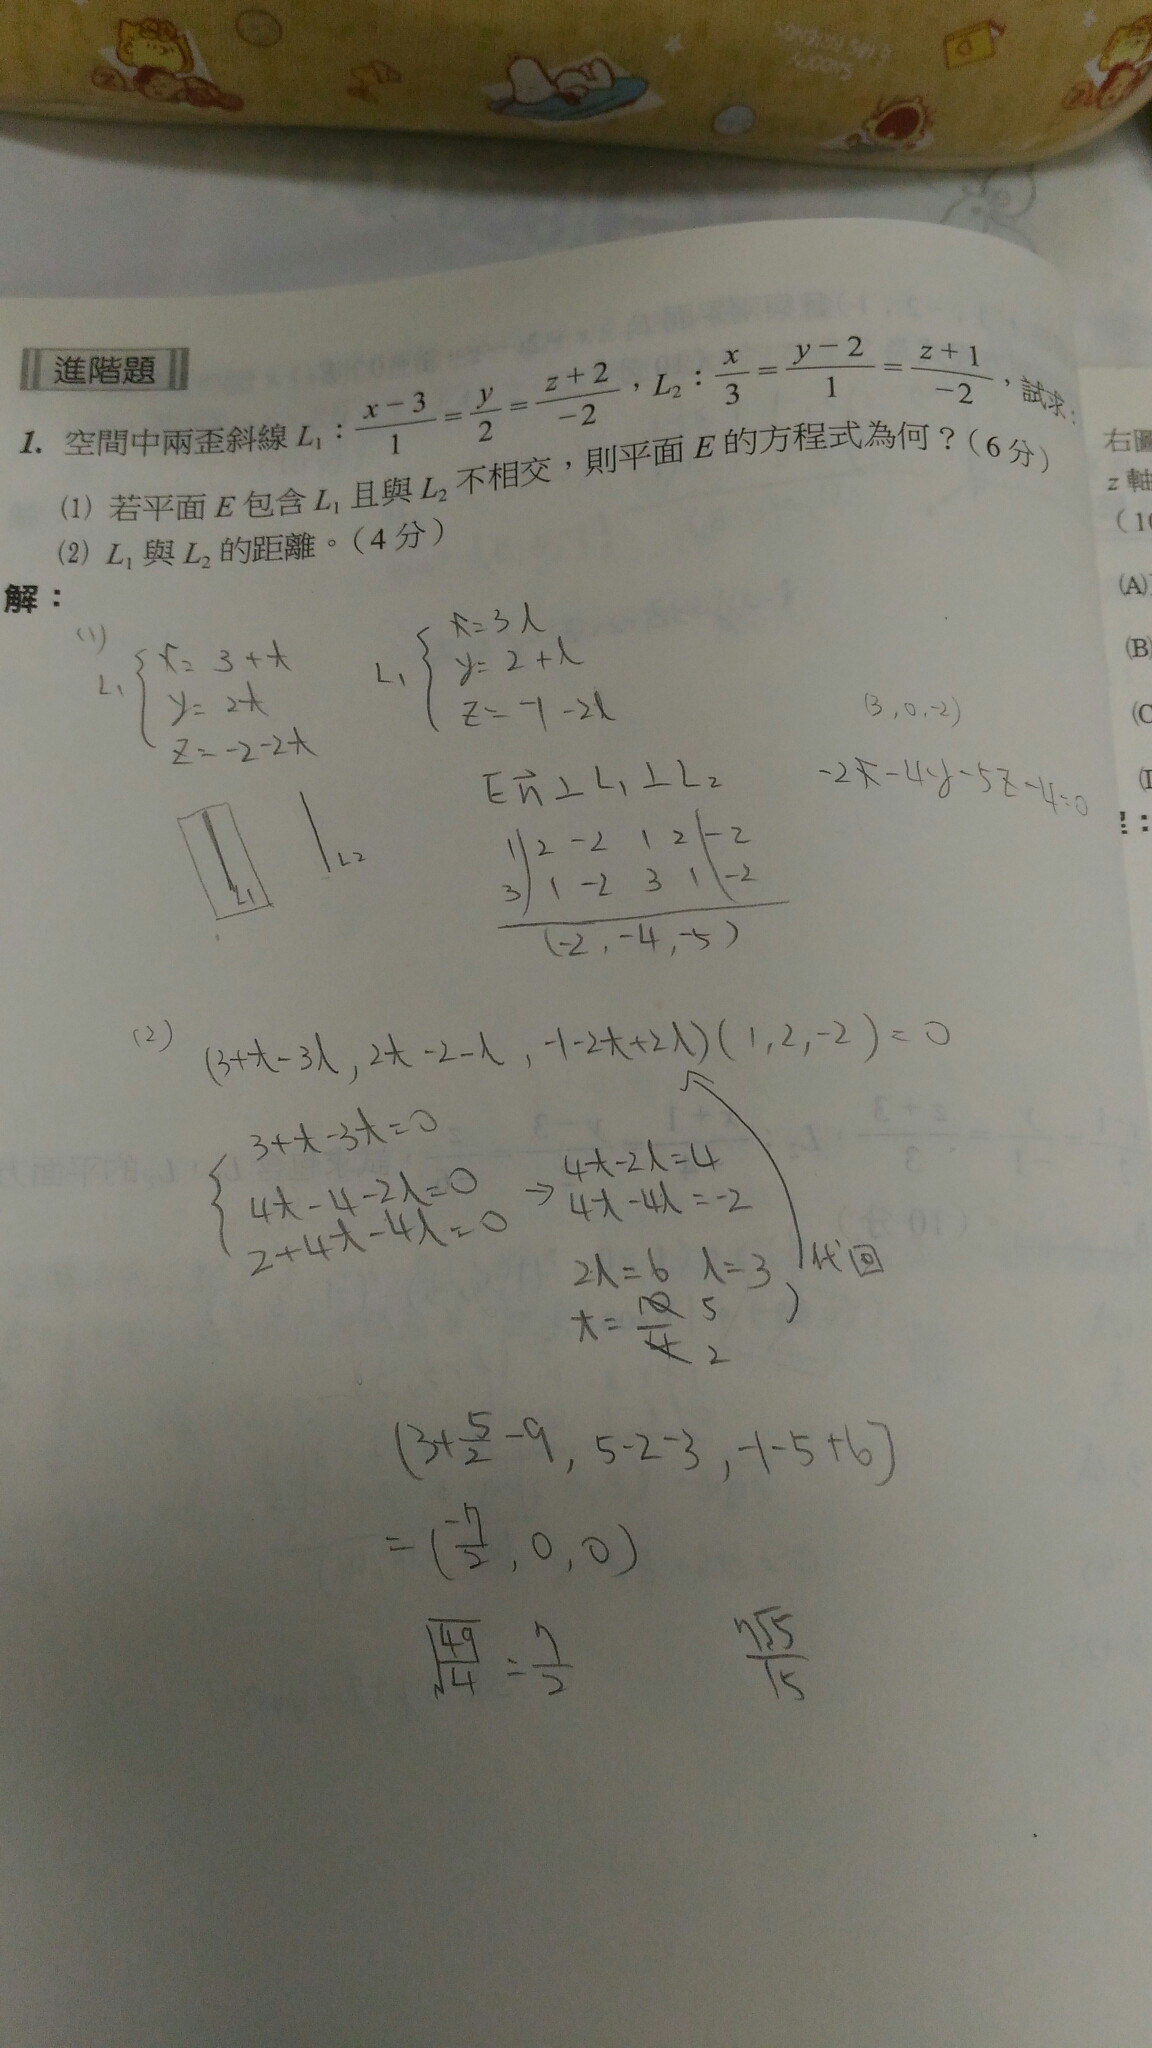 進階題
1. 空間中兩歪斜線 L₁：(x−3)/1 = y/2 = (z+2)/−2，L₂：x/3 = (y−2)/1 = (z+1)/−2，試求：
(1) 若平面 E 包含 L₁ 且與 L₂ 不相交，則平面 E 的方程式為何？(6分)
(2) L₁ 與 L₂ 的距離。(4分)
解：
(1)
L₁ { x = 3 + t
y = 2t
z = -2 - 2t
L₁ { x = 3λ
y = 2 + λ
z = -1 - 2λ
(3, 0, -2)
-2x - 4y - 5z - 4 = 0
E n⃗ ⊥ L₁ ⊥ L₂
L₁
L₂
1 | 2 -2 1 2 | -2
3 | 1 -2 3 1 | -2
(-2, -4, -5)
(2) (3+t-3λ, 2t-2-λ, -1-2t+2λ)(1, 2, -2) = 0
{ 3+t-3λ=0
4t-4-2λ=0
2+4t-4λ=0
→ 4t-2λ=4
4t-4λ=-2
2λ=6 λ=3
t = 10/4 5/2
代回
(3+5/2-9, 5-2-3, -1-5+6)
= (-7/2, 0, 0)
√(49/4) = 7/2
7√5/15
右圖
z 軸
(10
(A)
(B)
(C